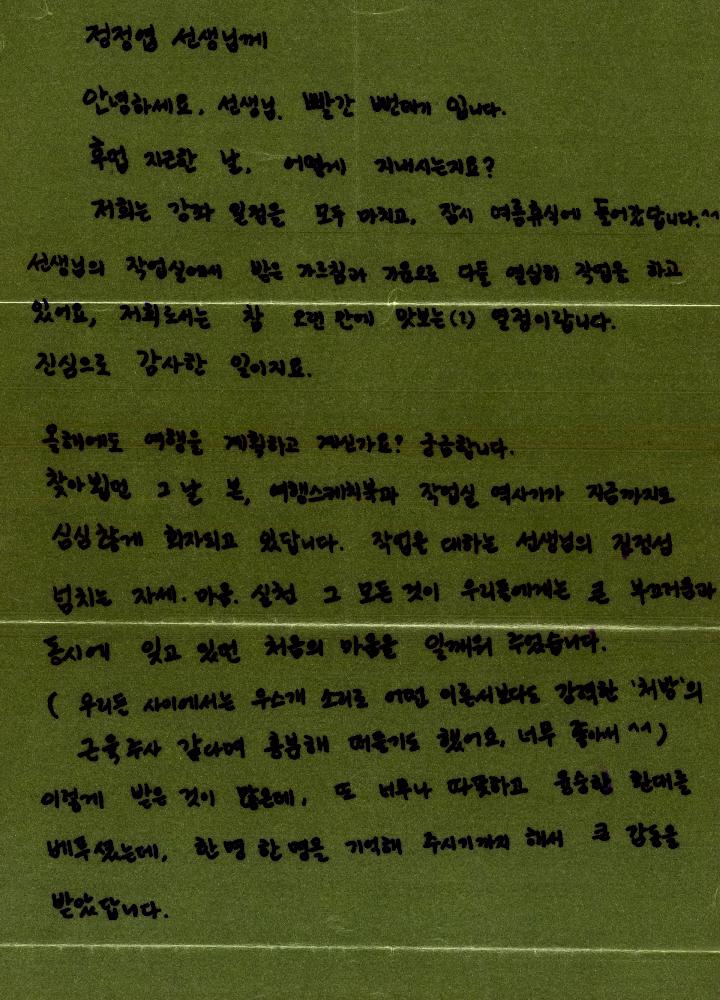 정정엽 선생님께
안녕하세요, 선생님. 빨간 뻔데기 입니다.
후덥 지근한 날, 어떻게 지내시는지요?
저희는 강좌 일정을 모두 마치고, 잠시 여름휴식에 들어갔답니다.^^
선생님의 작업실에서 받은 가르침과 기운으로 다들 열심히 작업을 하고
있어요, 저희로서는 참 오랜 만에 맛보는(?) 열정이랍니다.
진심으로 감사한 일이지요.
올해에도 여행을 계획하고 계신가요? 궁금합니다.
찾아뵙던 그 날 본, 여행스케치북과 작업실 역사기가 지금까지도
심심찮게 회자되고 있답니다. 작업을 대하는 선생님의 진정성
넘치는 자세. 마음. 실천 그 모든 것이 우리들에게는 큰 부끄러움과
동시에 잊고 있던 처음의 마음을 일깨워 주었습니다.
( 우리든 사이에서는 우스개 소리로 어떤 이론서보다도 강력한 '처방'의
근육주사 같다며 흥분해 떠들기도 했어요, 너무 좋아서 ^^ )
이렇게 받은 것이 많은데, 또 너무나 따뜻하고 융숭한 환대를
베푸셨는데, 한 명 한 명을 기억해 주시기까지 해서 큰 감동을
받았답니다.